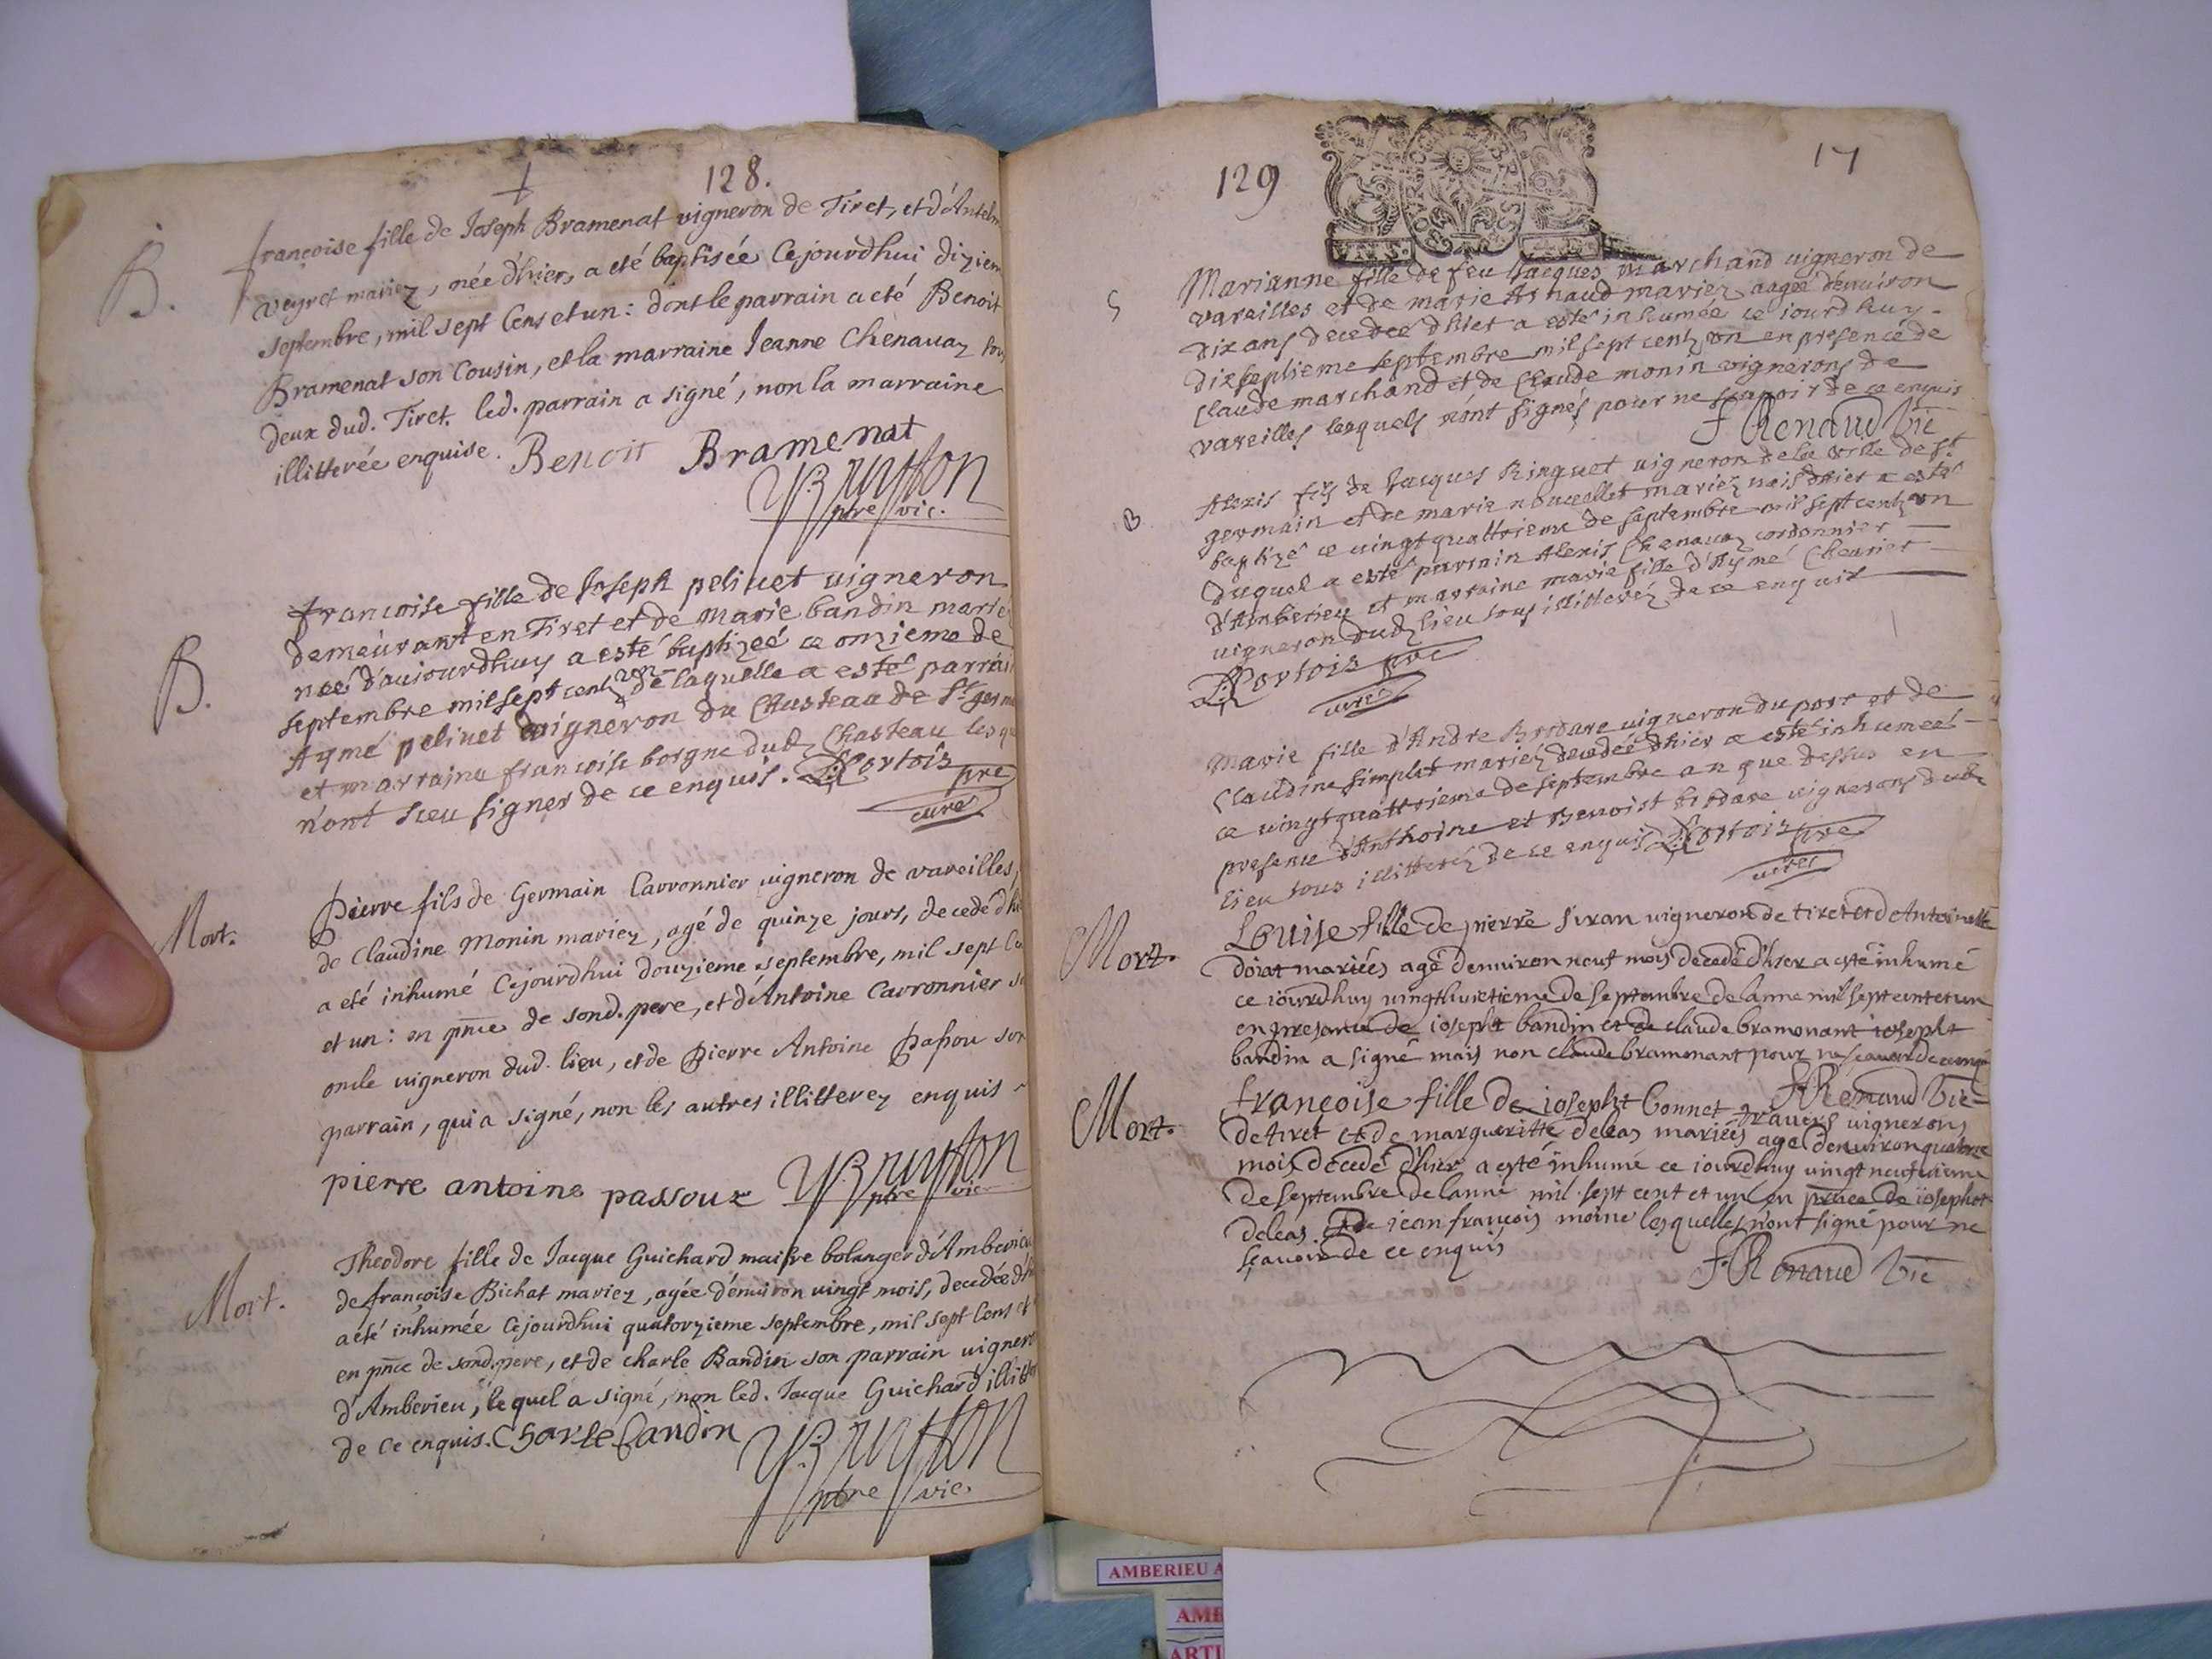 128.
B.
françoise fille de Joseph Bramenat vigneron de Tiret, et d'Antelm
veyret mariez, née d'hier, a eté baptisée Cejourdhui diziem
septembre, mil sept Cens et un: dont le parrain a eté Benoit
Bramenat son Cousin, et la marraine Jeanne Chenavaz tou
deux dud. Tiret. led. parrain a signé, non la marraine
illitterée enquise. Benoit Bramenat
ptre vic.
B.
francoise fille de Joseph pelivet vigneron
demeurant en Tiret et de Marie bandin marie
neé d'aujourdhuy a esté baptizeé ce onzieme de
septembre mil sept centz un de laquelle a esté parrai
Aymé pelivet vigneron du Chasteau de St germ
et marraine francoise borgne dudz Chasteau lesqu
n'ont sceu signer de ce enquis. Cortois pre
curé
Mort.
Pierre fils de Germain Carronnier vigneron de vareilles,
de Claudine Monin mariez, agé de quinze jours, decedé d'hi
a eté inhumé Cejourdhui douzieme septembre, mil sept Ce
et un: en pnce de sond. pere, et d'Antoine Carronnier so
oncle vigneron dud. lieu, et de Pierre Antoine Passou son
parrain, qui a signé, non les autres illitterez enquis
pierre antoine passouz
ptre vic
Mort.
Theodore fille de Jacque Guichard maitre bolanger d'Amberieu
de françoise Bichat mariez, agée d'environ vingt mois, decedée d'h
a eté inhumée Cejourdhui quatorzieme septembre, mil sept Cens et
en pnce de sond. pere, et de charle Bandin son parrain vignero
d'Amberieu, lequel a signé, non led. Jacque Guichard illitt
de ce enquis. Charle bandin
ptre vic.
129
17
S
Marianne fille de feu Jacques marchand vigneron de
vareilles et de marie Arnaud mariez aageé d'environ
dix ans decedee d'hier a esté inhumée ce jourdhuy
dixseptieme septembre mil sept centz un en presence de
Claude marchand et de Claude monin vignerons de
vareilles lesquels n'ont signés pour ne sçavoir de ce enquis
F Renaud vic
B
Alexis fils de Jacques Ringuet vigneron de la ville de St
germain et de marie nouvellet mariez nais d'hier a esté
baptizé ce vingtquattrieme de septembre mil sept centz un
duquel a esté parrain Alexis Chenavaz cordonnier
d'Amberieu et marraine marie fille d'Aymé Chevrier
vigneron dudz lieu tous illitterez de ce enquis
Cortois pre
curé
Marie fille d'Andre brodare vigneron du post et de
Claudine simplet mariez decedée d'hier a esté inhumeé
ce vingtquattrieme de septembre an que dessus en
presence d'Anthoine et Benoist brodare vignerons dudz
lieu tous illitterez de ce enquis Cortois pre
curé
Mort.
Louise fille de pierre siran vigneron de tiret et d'Antoinette
doiat mariées agé denviron neuf mois decedé d'hier a esté inhumé
ce iourdhuy vingthuictieme de septembre de lanne mil sept cent et un
en presance de iosepht bandin et de claude bramenant iosepht
bandin a signé mais non claude bramenant pour ne scavoir de ce enquis
F Renaud vic
Mort.
françoise fille de iosepht bonnet travers vignerons
de tiret et de margueritte deleas mariées agé denviron quatorze
mois decedé d'hier a esté inhumé ce iourdhuy vingt neufvieme
de septembre de lanné mil sept cent et un en pnce de iosepht
deleas et de jean françois moine lesquelles n'ont signé pour ne
sçavoir de ce enquis
F Renaud vic
AMBERIEU A
AMB
ARTI